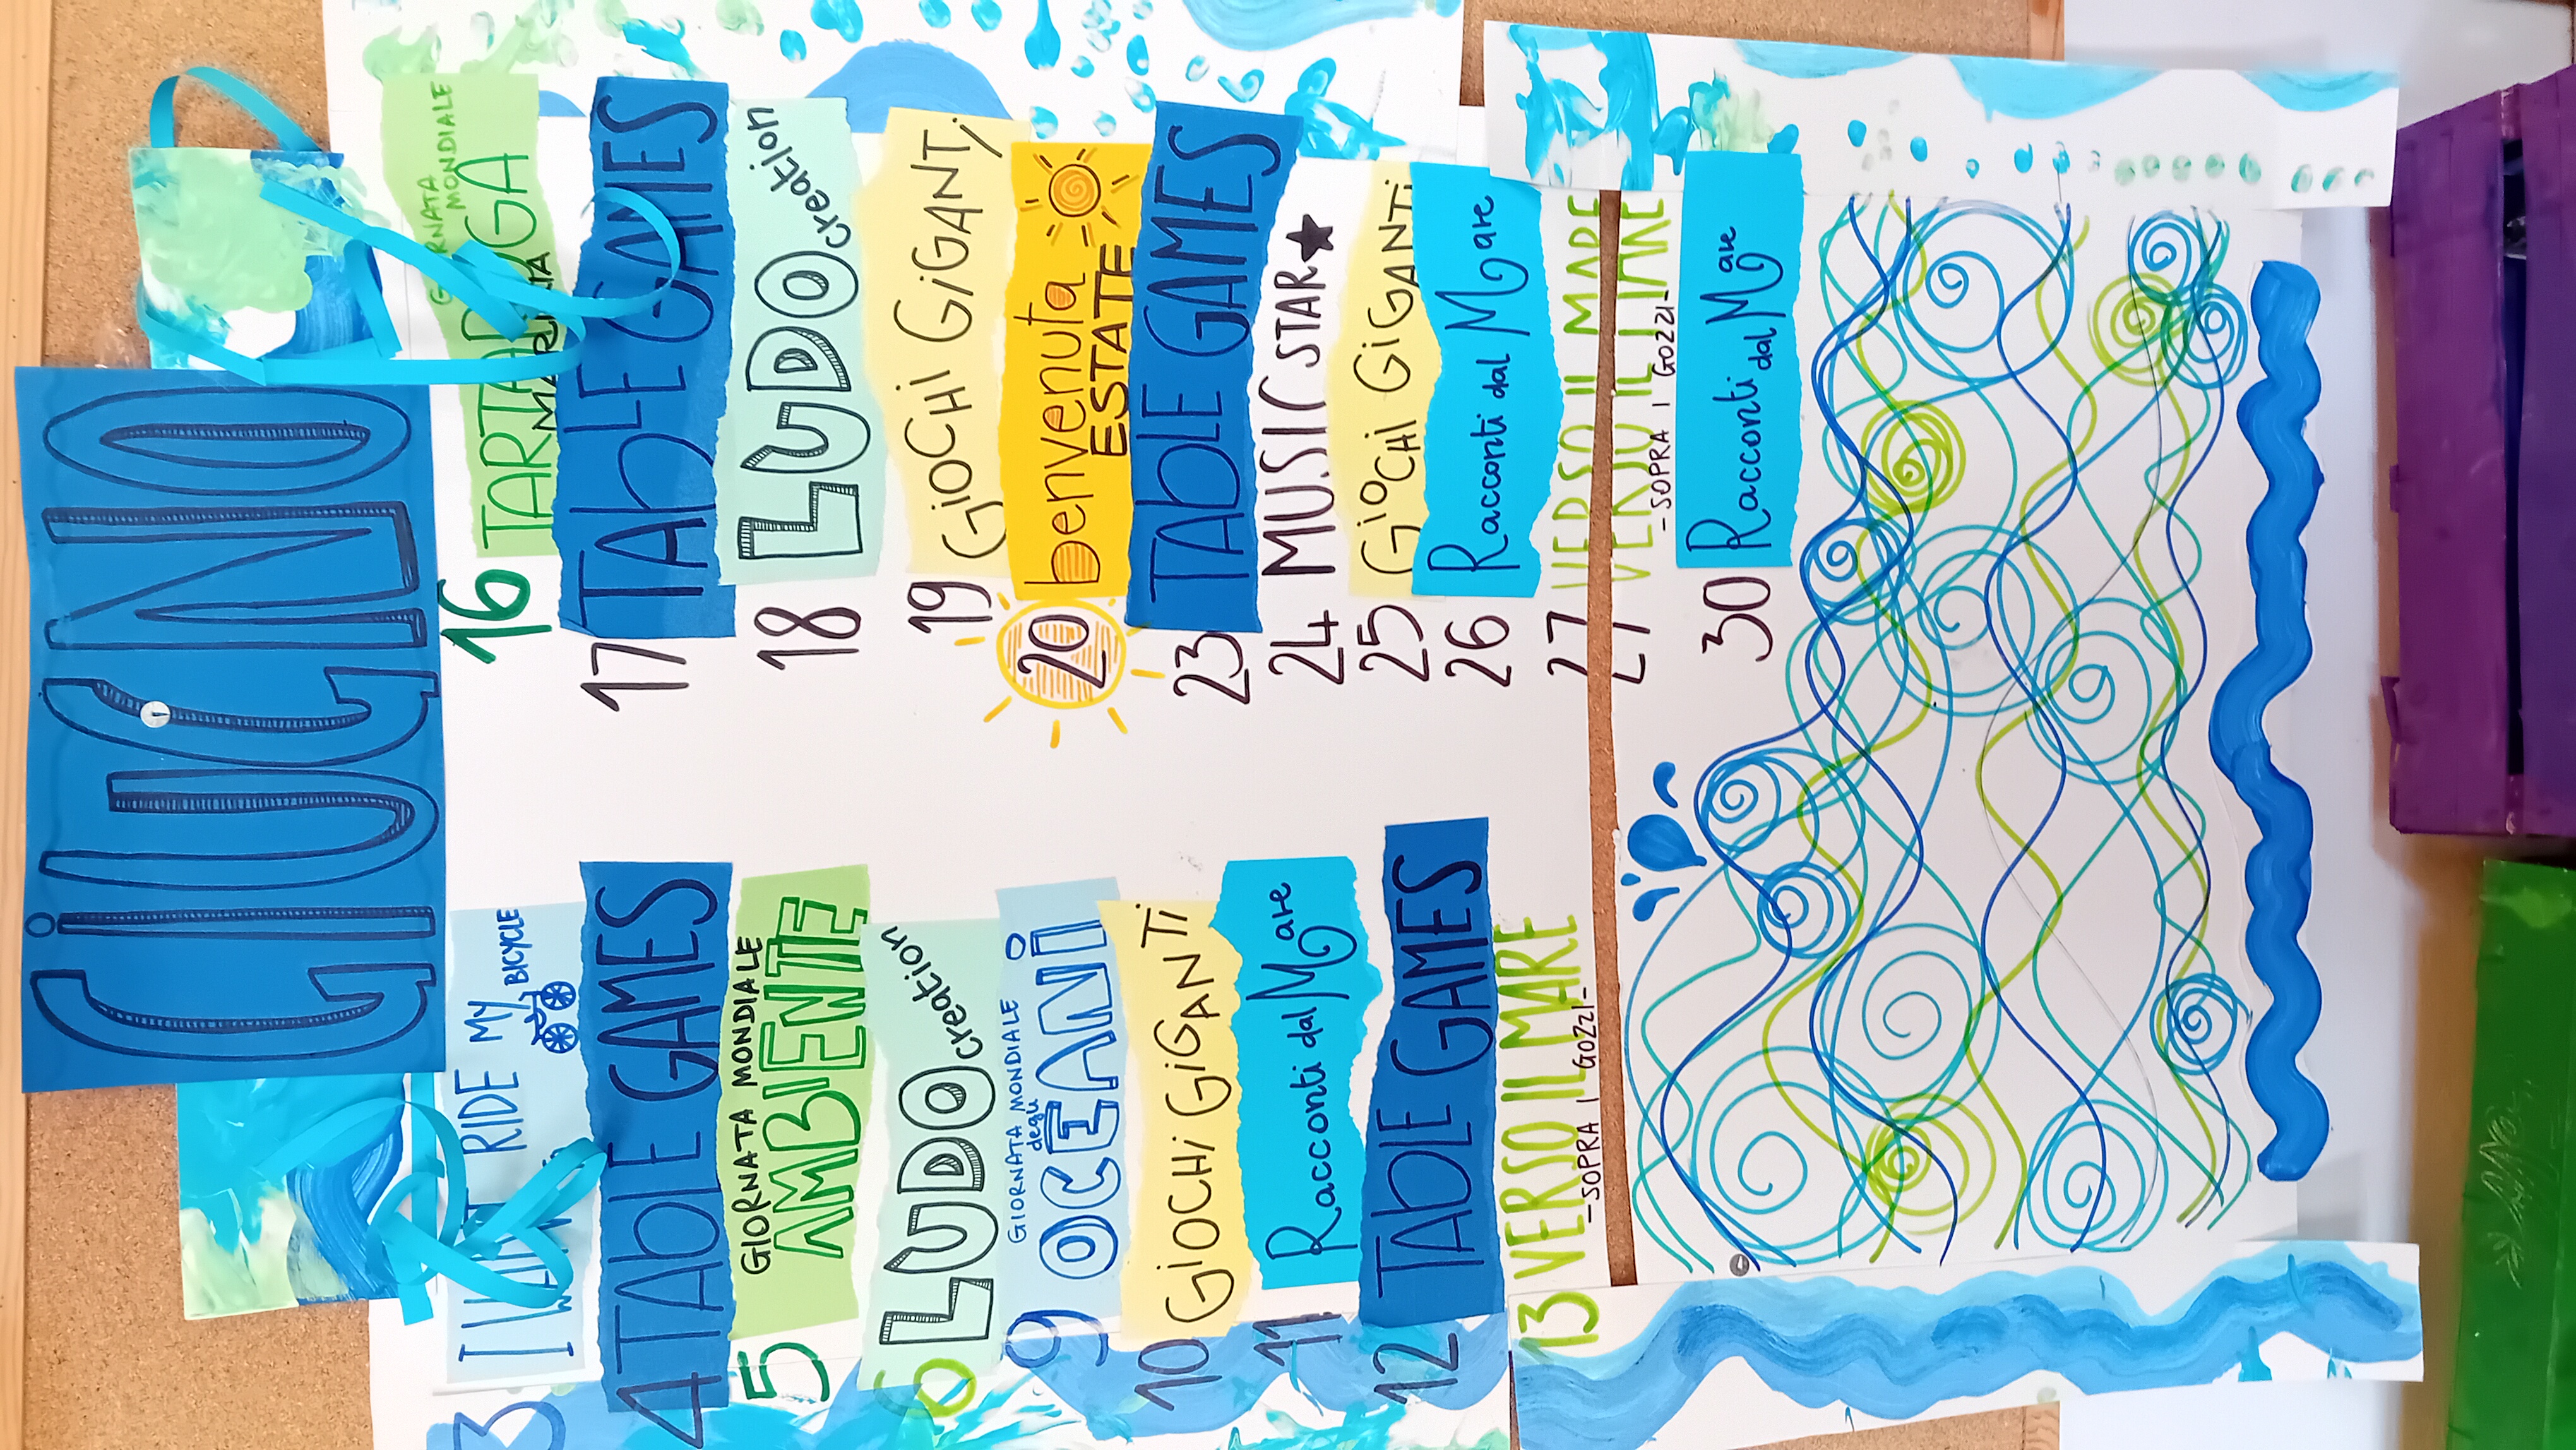 GiUGNO
3 I WANT RIDE MY BICYCLE
4 TAbLE GAMES
5 GIORNATA MONDIALE
AMBIENTE
6 LUDO creation
9 GIORNATA MONDIALE
degli
OCEANi
10 GiOCHi GiGANTi
11 Racconti dal Mare
12 TAbLE GAMES
13 VERSO IL MARE
-SOPRA I GOZZI-
16 MONDIALE
TARTARUGA
MARINA
17 TAbLE GAMES
18 LUDO creation
19 GiOCHi GiGANTi
20 benvenuta
ESTATE
23 TAbLE GAMES
24 MUSIC STAR
25 GiOCHi GiGANTi
26 Racconti dal Mare
27 VERSO IL MARE
27 VERSO IL MARE
-SOPRA I GOZZI-
30 Racconti dal Mare